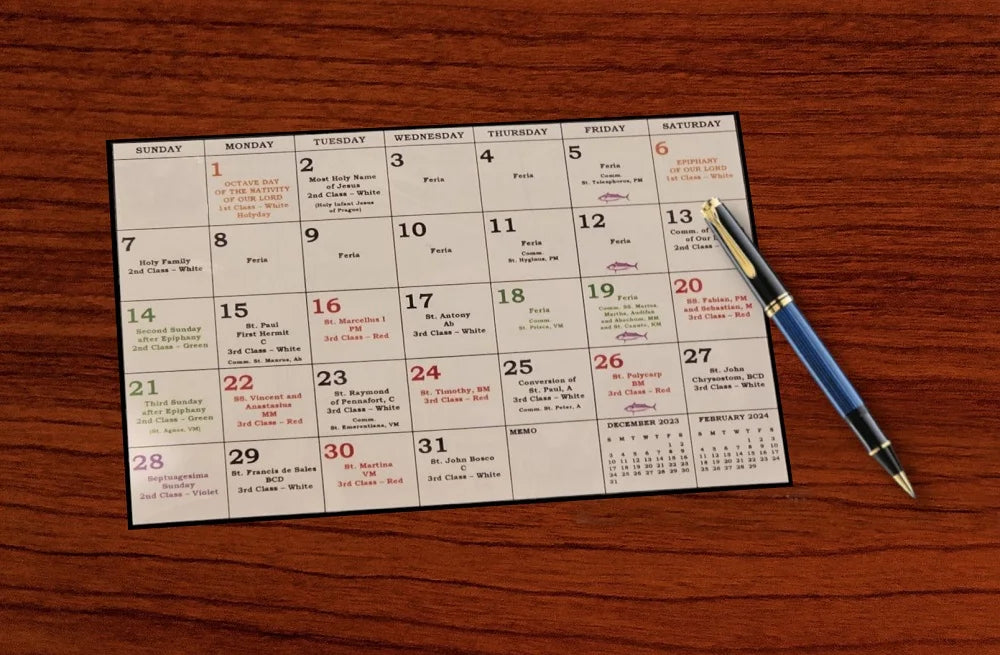 SUNDAY MONDAY TUESDAY WEDNESDAY THURSDAY FRIDAY SATURDAY
1
OCTAVE DAY
OF THE NATIVITY
OF OUR LORD
1st Class – White
Holyday
2
Most Holy Name
of Jesus
2nd Class – White
(Holy Infant Jesus
of Prague)
3
Feria
4
Feria
5
Feria
Comm.
St. Telesphorus, PM
6
EPIPHANY
OF OUR LORD
1st Class – White
7
Holy Family
2nd Class – White
8
Feria
9
Feria
10
Feria
11
Feria
Comm.
St. Hyginus, PM
12
Feria
13
Comm. of
of Our
2nd Class –
14
Second Sunday
after Epiphany
2nd Class – Green
15
St. Paul
First Hermit
C
3rd Class – White
Comm. St. Maurus, Ab
16
St. Marcellus I
PM
3rd Class – Red
17
St. Antony
Ab
3rd Class – White
18
Feria
Comm.
St. Prisca, VM
19
Feria
Comm. SS. Marius,
Martha, Audifax
and Abachum, MM
and St. Canute, KM
20
SS. Fabian, PM
and Sebastian, M
3rd Class – Red
21
Third Sunday
after Epiphany
2nd Class – Green
(St. Agnes, VM)
22
SS. Vincent and
Anastasius
MM
3rd Class – Red
23
St. Raymond
of Pennafort, C
3rd Class – White
Comm.
St. Emerentiana, VM
24
St. Timothy, BM
3rd Class – Red
25
Conversion of
St. Paul, A
3rd Class – White
Comm. St. Peter, A
26
St. Polycarp
BM
3rd Class – Red
27
St. John
Chrysostom, BCD
3rd Class – White
28
Septuagesima
Sunday
2nd Class – Violet
29
St. Francis de Sales
BCD
3rd Class – White
30
St. Martina
VM
3rd Class – Red
31
St. John Bosco
C
3rd Class – White
MEMO
DECEMBER 2023
S M T W T F S
1 2
3 4 5 6 7 8 9
10 11 12 13 14 15 16
17 18 19 20 21 22 23
24 25 26 27 28 29 30
31
FEBRUARY 2024
S M T W T F S
1 2 3
4 5 6 7 8 9 10
11 12 13 14 15 16 17
18 19 20 21 22 23 24
25 26 27 28 29